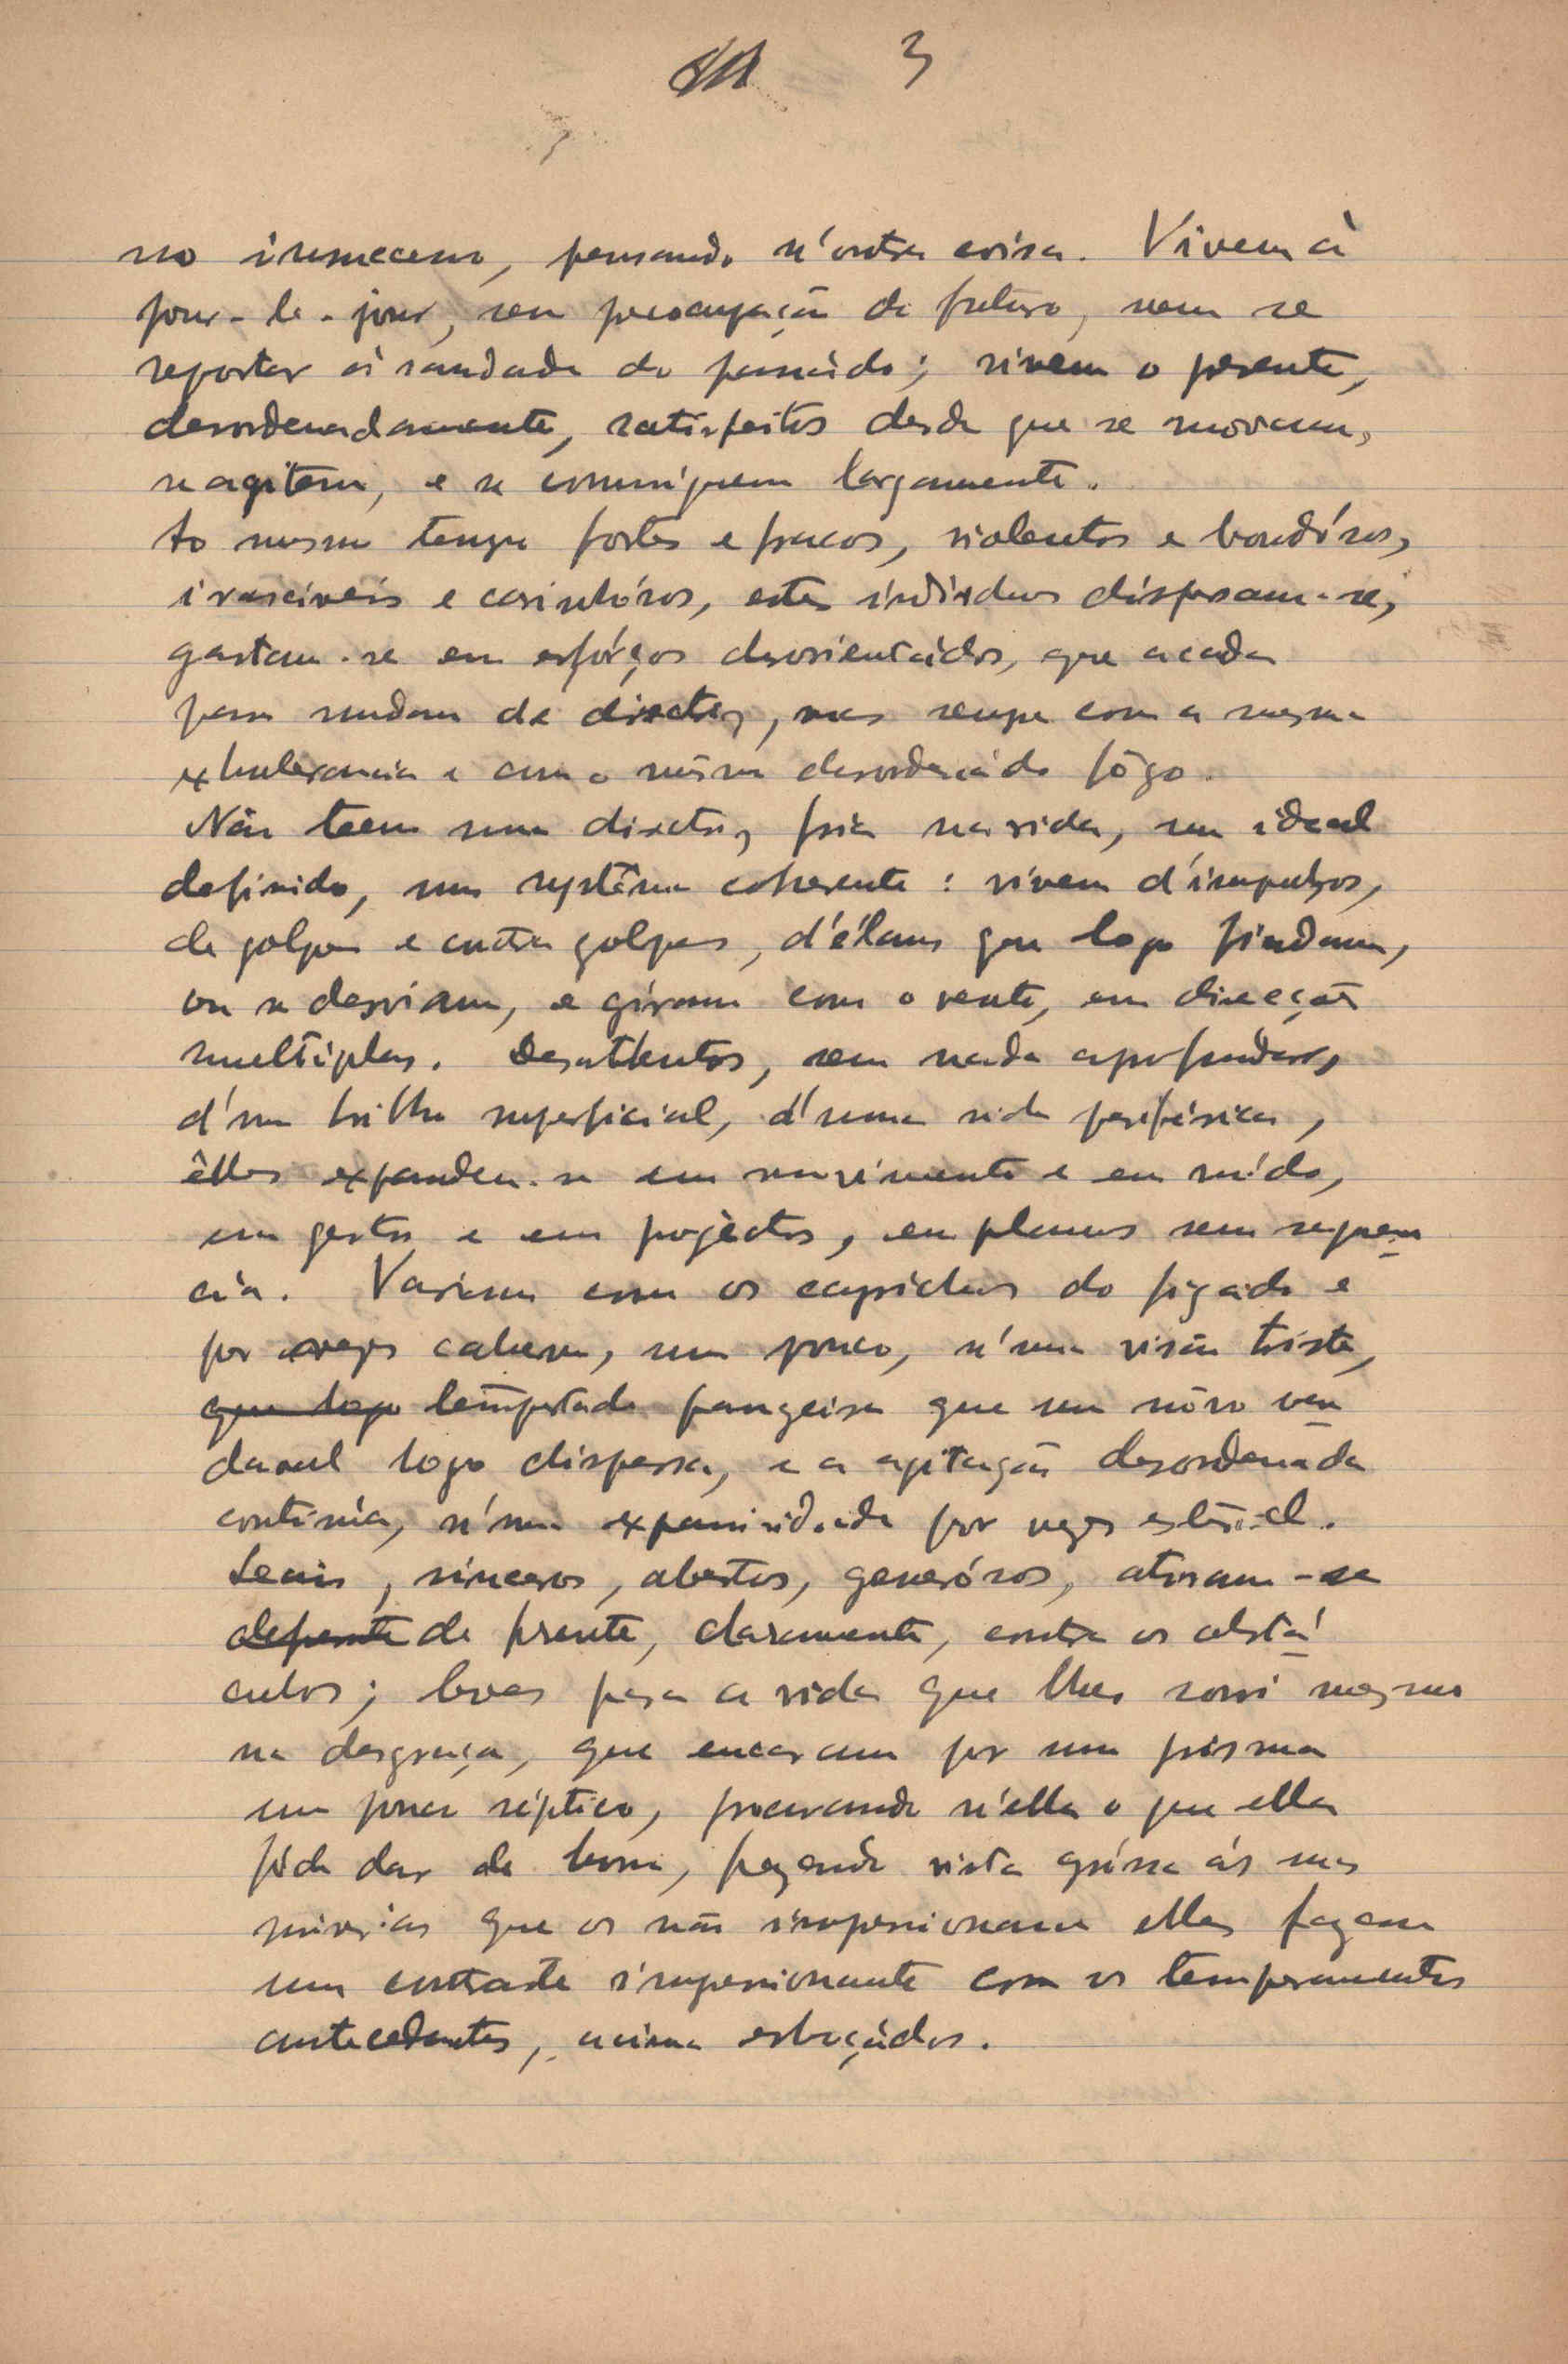 3
pensando n'outra coisa. Vivem à
jour-le-jour, sem preocupação de futuro, nem se
reportar à saudade do passádo; vivem o presente,
desordenadamente, satisfeitos desde que se movam,
se agitem, e se comuniquem largamente.
Ao mesmo tempo fortes e fracos, violentos e bondósos,
irascíveis e carinhósos, estes individuos dispersam-se,
gastam-se em esfórços desorientádos, que a cada
passo mudam de directriz, mas sempre com a mesma
exhuberancia e com o mêsmo desordenádo fôgo.
Não teem uma directriz fria na vida, um ideal
definido, um systêma coherente: vivem d'impulsos,
de golpes e contra golpes, d'élans que logo findam,
ou se desviam, e giram com o vento, em direcções
multiplas. Desattentos, sem nada aprofundar,
d'um brilho superficial, d'uma vida periférica,
êlles expandem-se em movimento e em ruído,
em gestos e em projéctos, em planos sem sequen
cia. Variam com os caprichos do figado e
por vezes cahem, um pouco, n'uma visão triste,
que logo tempestade passageira que um nôvo ven
daval logo dispersa, e a agitação desordenada
continúa, n'uma expansividade por vezes estéril.
Leais, sinceros, abertos, generósos, atiram-se
de frente, claramente, contra os obstá
culos; bôas para a vida que lhes sorri mesmo
na desgraça, que encaram por um prisma
um pouco séptico, procurando n'ella o que ella
póde dar de bom, fazendo vista gróssa ás suas
miserias que os não impressionam elles fazem
um contraste impressionante com os temperamentos
antecedentes, acima esboçádos.